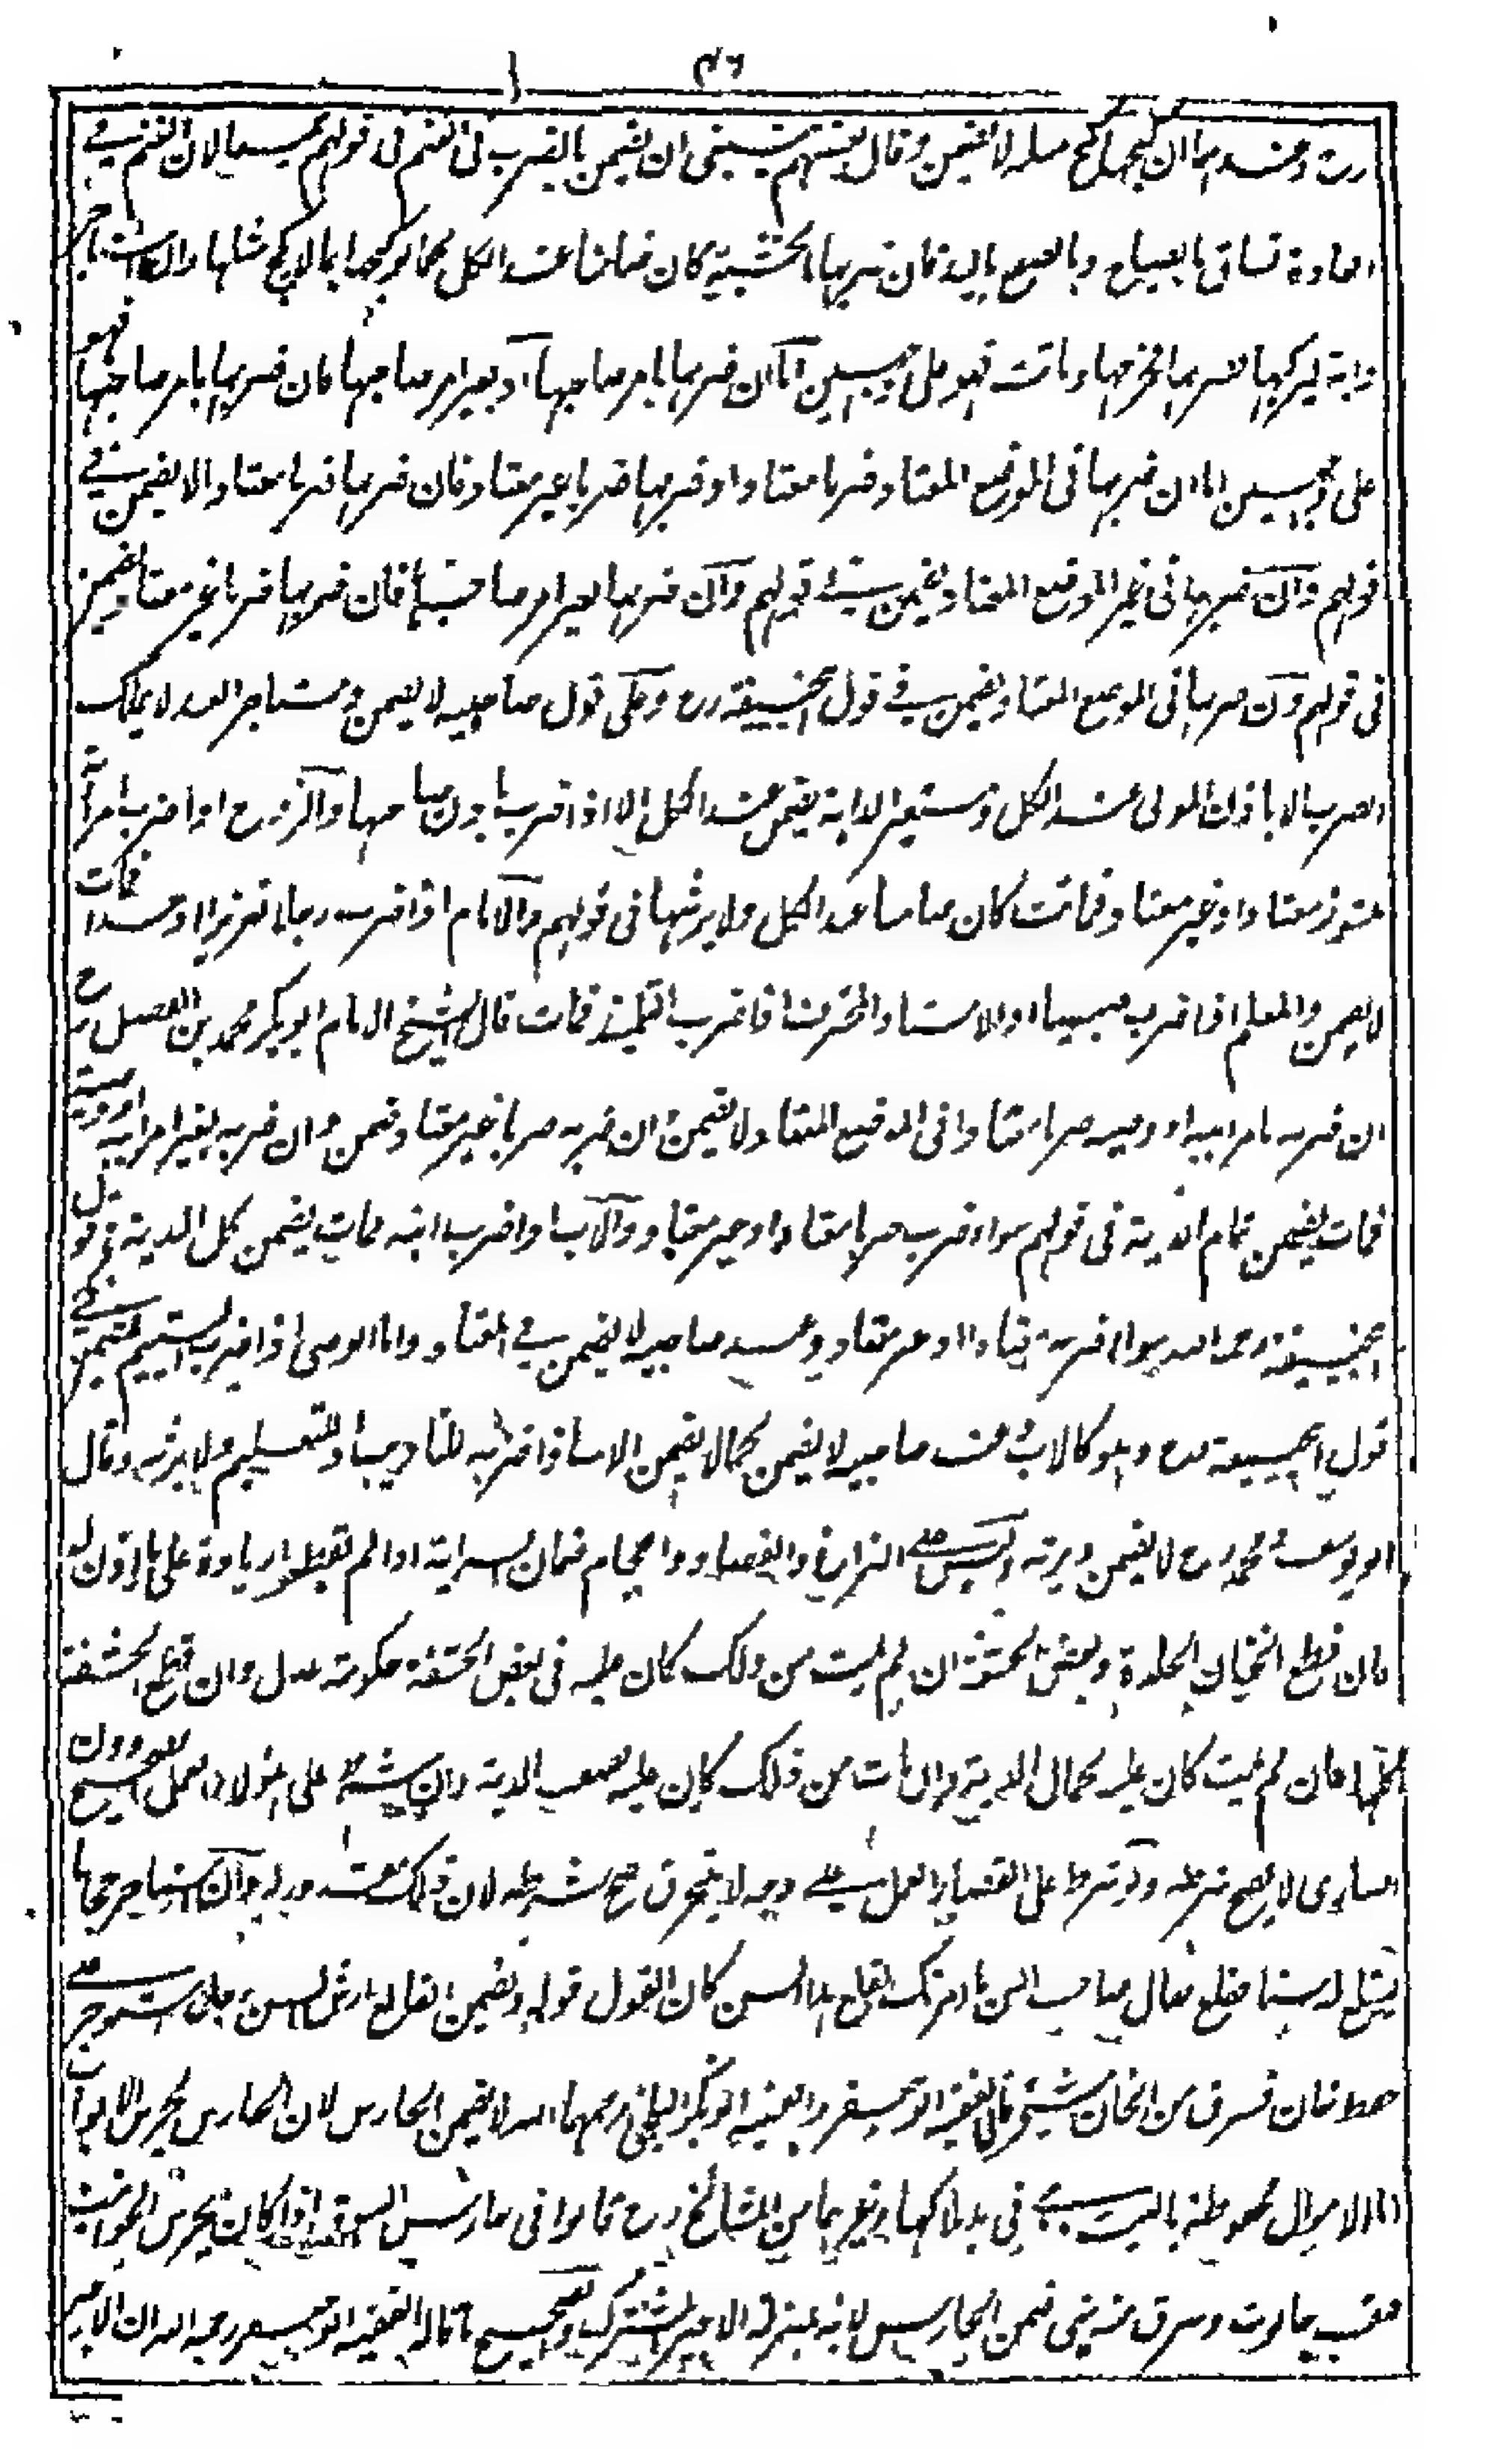 ٣٦
رح وعندهما ان كبحها كبح مثله لا يضمن وقال بعضهم ينبغي ان يضمن بالضرب في الغنم في قولهم جميعا لان الغنم في
العادة تساق بالصياح وبالصيح باليد فان ضربها بالخشبة كان ضامنا عند الكل كما لو كبح دابة بما لا يكبح مثلها والمستاجر
دابة ليركبها فضربها او كبحها وماتت فهو على وجهين اما ان ضربها بامر صاحبها او بغير امر صاحبها فان ضربها بامر صاحبها فهو
على وجهين اما ان ضربها في الموضع المعتاد ضربا معتادا او ضربها ضربا غير معتاد فان ضربها ضربا معتادا لا يضمن في
قولهم وان ضربها في غير الموضع المعتاد يضمن في قولهم وان ضربها بغير امر صاحبها فان ضربها ضربا غير معتاد يضمن
في قولهم وان ضربها في الموضع المعتاد يضمن في قول ابي حنيفة رح وعلى قول صاحبيه لا يضمن ومستاجر العبد لا يملك
الضرب الا باذن المولى عند الكل ومستعير الدابة يضمن عند الكل الا اذا ضرب باذن صاحبها والزوج اذا ضرب امرأته
لنشوز معتادا او غير معتاد فماتت كان ضامنا عند الكل ولا يرثها في قولهم والامام اذا ضرب رجلا تعزيرا او حدا فمات
لا يضمن والمعلم اذا ضرب صبيا او الاستاد المحترف اذا ضرب التلميذ فمات قال الشيخ الامام ابو بكر محمد بن الفضل رح
ان ضربه بامر ابيه او وصيه ضربا معتادا في الموضع المعتاد لا يضمن وان ضربه ضربا غير معتاد ضمن وان ضربه بغير امر ابيه او وصيه
فمات يضمن تمام الدية في قولهم سواء ضرب ضربا معتادا او غير معتاد والاب اذا ضرب ابنه فمات يضمن كل الدية في قول
ابي حنيفة رحمه الله سواء ضربه معتادا او غير معتاد وعند صاحبيه لا يضمن في المعتاد واما الوصي اذا ضرب اليتيم يضمن في
قول ابي حنيفة رح وهو كالاب وعند صاحبيه لا يضمن كما لا يضمن الاستاذ اذا ضربه للتاديب او للتعليم ولا يرثه وقال
ابو يوسف ومحمد رح لا يضمن ويرثه وليس على البزاغ والفصاد والحجام ضمان السراية اذا لم يقطعوا زيادة على الماذون له
فان قطع الختان الجلدة وبعض الحشفة ان لم يمت من ذلك كان عليه في بعض الحشفة حكومة عدل وان قطع الحشفة
كلها فان لم يمت كان عليه كمال الدية وان مات من ذلك كان عليه نصف الدية وان شرط على هؤلاء العمل الصحيح دون
الساري لا يصح شرطه ولو شرط على القصار العمل على وجه لا يتخرق صح شرطه لان ذلك مقدور له وان استاجر حجاما
يقلع له سنا فقلع فقال صاحب السن ما امرتك بقلع هذا السن كان القول قوله ويضمن القالع ارش السن رجل استوجر على
حفظ خان فسرق من الخان شئ قال الفقيه ابو جعفر والفقيه ابو بكر البلخي رحمهما الله لا يضمن الحارس لان الحارس يحرس الابواب
اما الاموال محفوظة بالبيت في يد ملاكها وغيرهما من المشائخ رح قالوا في حارس السوق اذا كان يحرس الحوانيت
فنقب حانوت وسرق منه شئ ضمن الحارس لانه بمنزلة الاجير المشترك والصحيح ما قاله الفقيه ابو جعفر رحمه الله ان الاجير